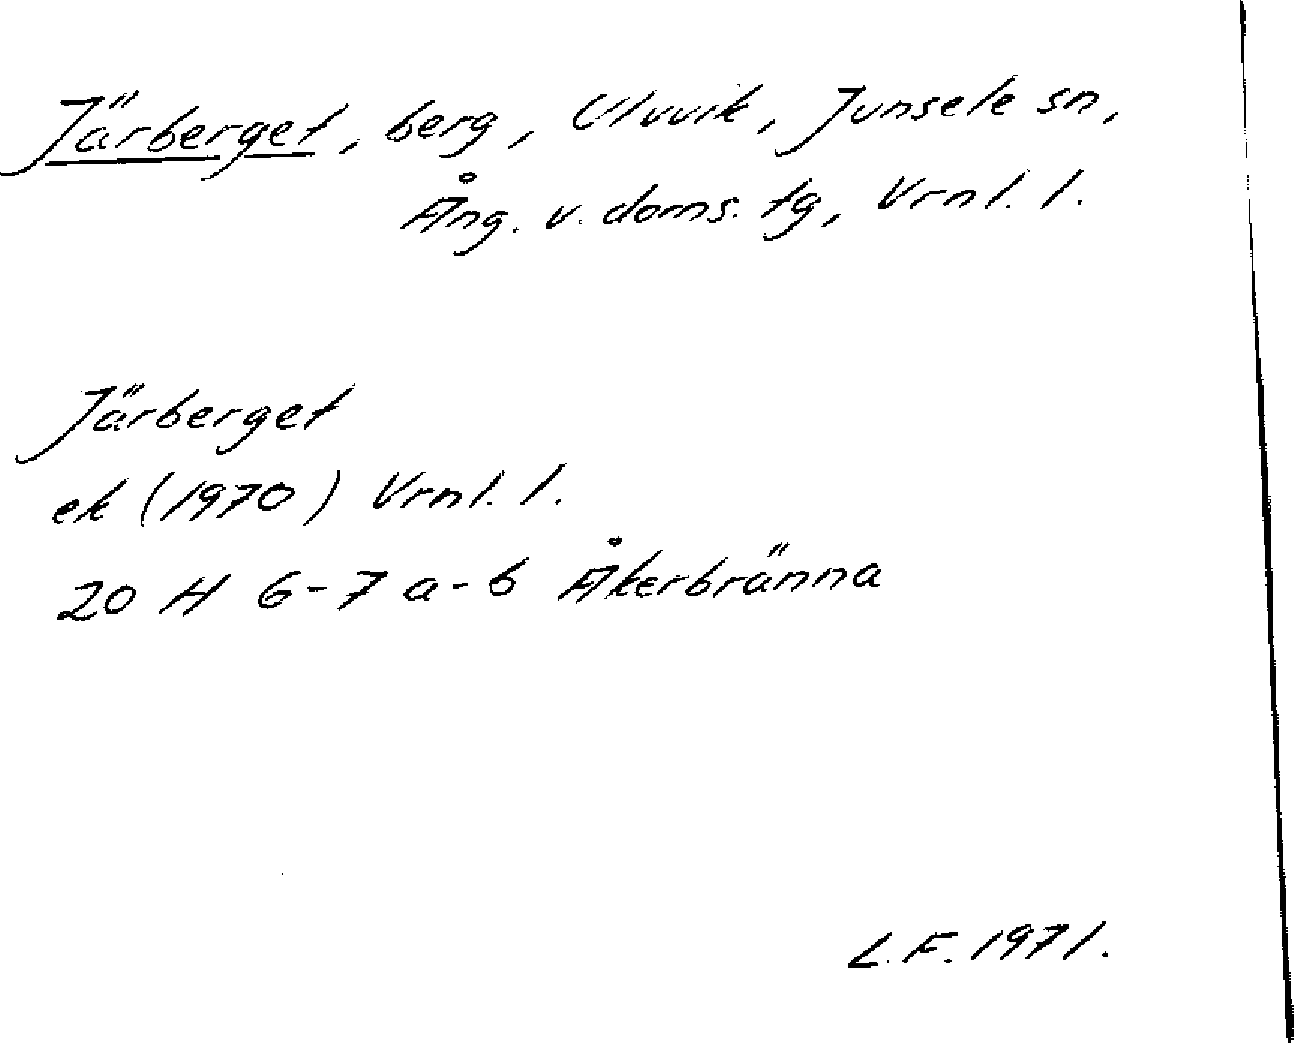 Järberget, berg, Ulvvik, Junsele sn,
Ång. v. doms. tg, Vrnl. l.
Järberget
ek (1970) Vrnl. l.
20 H 6-7 a-b Åkerbränna
L.F. 1971.